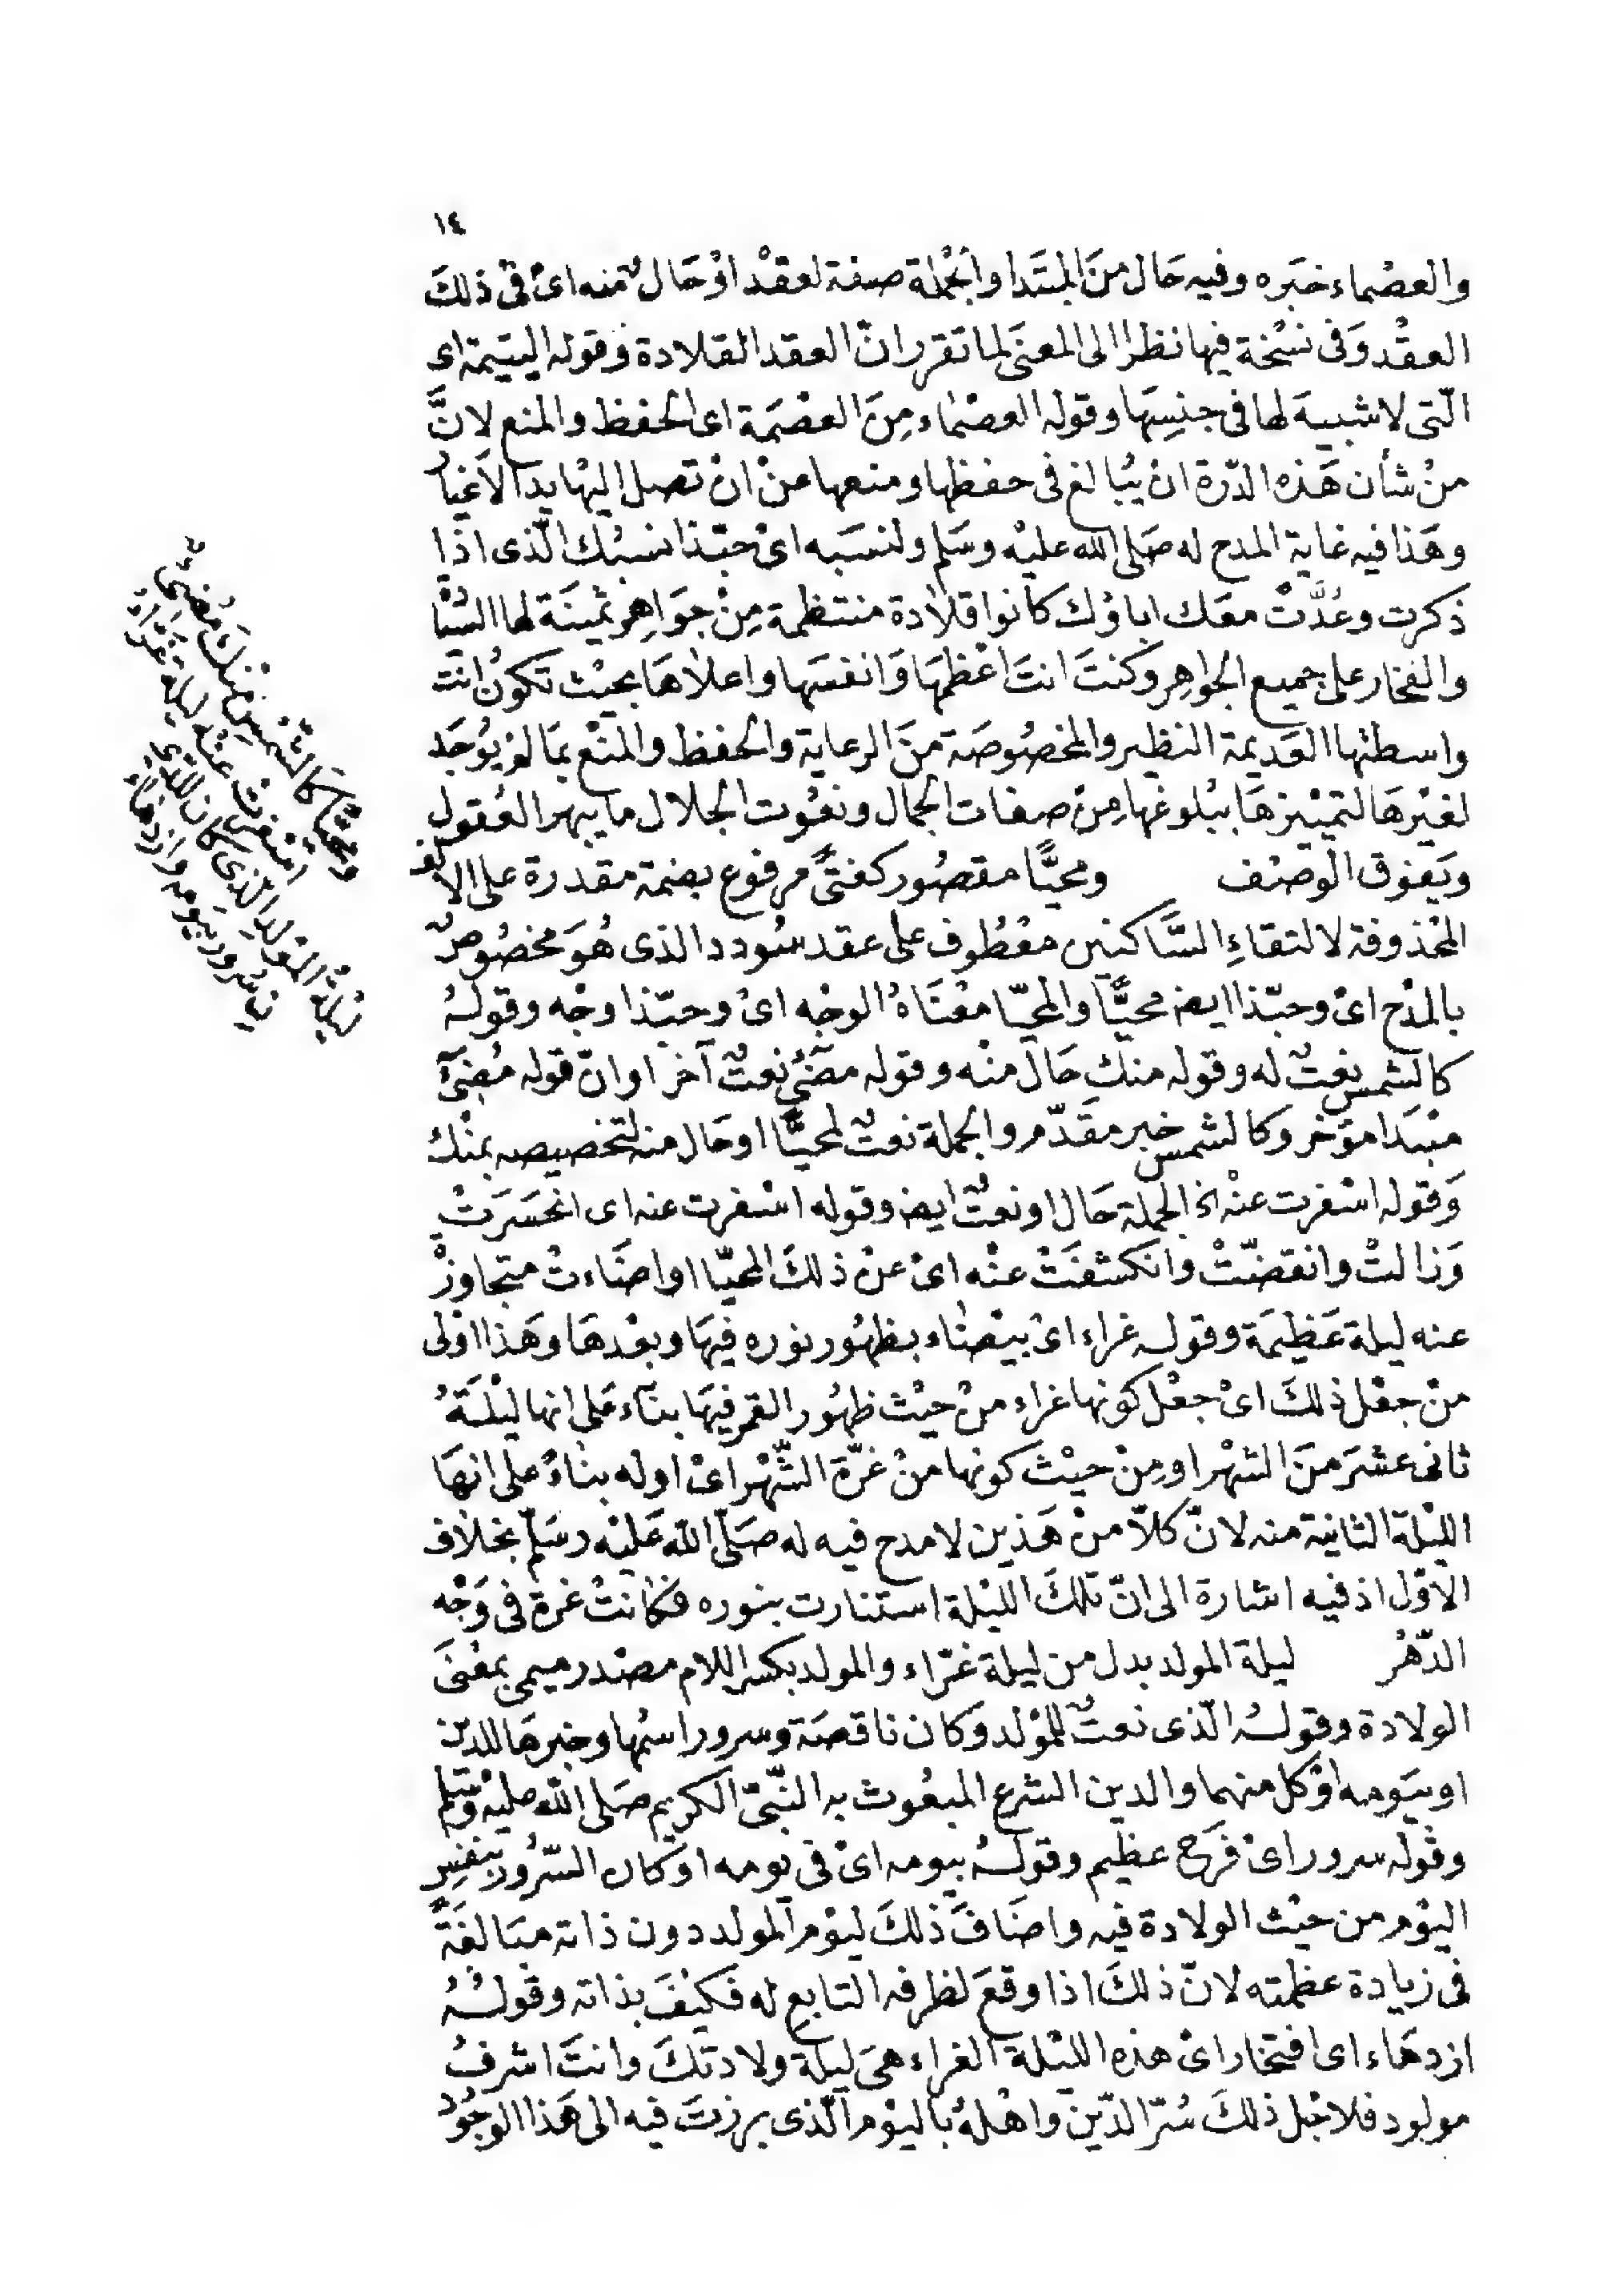 ١٤
والعصماء خبره وفيه حَال منَ المبتَدا والجُملة صفة لعقْد اوْ حَالٌ منه اىْ فى ذلكَ
العقْد وَفى نسْخة فيها نظرا الى المعنَى لما تقرر انّ العقد القلادة وقوله اليتيمة اى
الّتى لا شبيهَ لها فى جنسِهَا وقوله العصْماء مِنَ العصْمَة اى الحفظ والمنع لانَّ
منْ شأن هَذه الدّرة انْ يُبالغ فى حفظها ومنعها منْ انْ تصل اليْها يد الاغيار
وهَذا فيه غاية المدح له صَلى الله عليْه وسَلم ولنسَبه اىْ حبّذا نسبُك الّذى اذَا
ذكرت وعُدَّتْ معَك اباؤك كانوا قلادة منتظمة مِنْ جوَاهِر ثمينَة لها السَّنا
والفخار على جميع الجواهِر وَكنتَ انتَ اعْظمهَا وَانفسَها واعلاهَا بحيْث تكونُ انت
واسطتها العَديمة النظير والمخصُوصَة منَ الرعاية والحفظ والمنْع بمَا لم يُوجَد
لغيْرهَا لتميّزهَا ببُلوغها مِنْ صفات الجمال ونعُوت الجلال ما يبهر العُقول
ويَفوق الوصْف ومحيًّا مقصُور كفتًى مرفوع بضمة مقدرة على الالف
المحْذوفة لالتقاءِ السَّاكنين معْطُوف على عقد سُودد الذى هُوَ مخصُوصٌ
بالمدْح اىْ وحبّذا ايضا محيًّا والمحيّا معْنَاهُ الوجْه اىْ وحبّذا وجْه وقولهُ
كالشمس نعتٌ له وقوله منك حَال منْه وقوله مضىءُ نعتٌ آخر او انّ قوله مُضىءُ
مبْتدا مؤخر وكالشمس خبر مقدّم والجملة نعتٌ لمحيًّا او حَال منه لتخصيصه بمنْك
وَقوله اسْفرت عنْه الخ الجملة حَال او نعتٌ ايضا وقوله اسْفرت عنه اى انحسَرَتْ
وَزالتْ وانقضّتْ وانكشفَتْ عنْه اىْ عنْ ذلكَ المحيّا او اضَاءتْ متجاوزْ
عنه ليلة عَظيمَة وقوله غراء اىْ بيْضاء بظهُور نوره فيهَا وبعْدهَا وهَذا اوْلى
منْ جعْل ذلكَ اىْ جعْل كونها غراء منْ حيْث ظهُور القمر فيهَا بناء على انها ليْلةُ
ثانى عشرَ منَ الشهْر او مِنْ حيْث كونها منْ غرّة الشّهْر اىْ اوله بناءً على انهَا
الليْلة الثانية منه لانّ كلاّ منْ هَذين لا مدح فيه له صَلّى الله عَليْه وسَلّم بخلاف
الاوّل اذ فيه اشارة الى انّ تلكَ الليْلة استنارت بنوره فكانتْ غرة فى وَجْه
الدّهْر ليلة المولد بدل من ليلة غرّاء والمولد بكسر اللام مصْدر ميمى بمعْنَى
الولادة وقولهُ الّذى نعتٌ للموْلد وَكان ناقصَة وسرور اسْمها وخبرهَا للدين
او بيَومه اوْ كل منهما والدين الشرع المبعُوث به النّبىّ الكريم صَلى الله عليْه وسَلم
وقوله سرور اىْ فرَح عظيم وقولهُ بيومه اىْ فى يومه او كان السّرُور بنفس
اليوْم من حيْث الولادة فيه واضَافَ ذلكَ ليوْم المولد دون ذاته مبَالغَةً
فى زيادة عظمته لانّ ذلكَ اذا وقعَ لظرفه التابع له فكيْفَ بذاته وقولهُ
ازدهَاء اى افتخار اىْ هذه الليْلة الغراء هىَ ليلة ولادتكَ وانتَ اشرفُ
مولود فلاجْل ذلكَ سُرّ الدّين واهْلهُ باليوْم الّذى برزتَ فيه الى هَذا الوجُود
ومحيًّا كَالشّمْسِ مِنْكَ مُضِىءٌ
اسْفرَت عنْه ليلة غرّاءُ
ليْلةُ المَوْلِدِ الذِى كان للدّي
نِ سُرورٌ بيَومِه وازدِهَاءُ